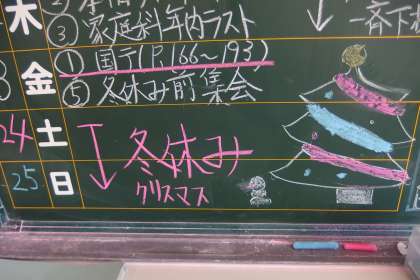 木
③ 家庭科年内ラスト
一斉下
金
① 国テ(P.166~193)
⑤ 冬休み前集会
24 土
冬休み
25 日
クリスマス